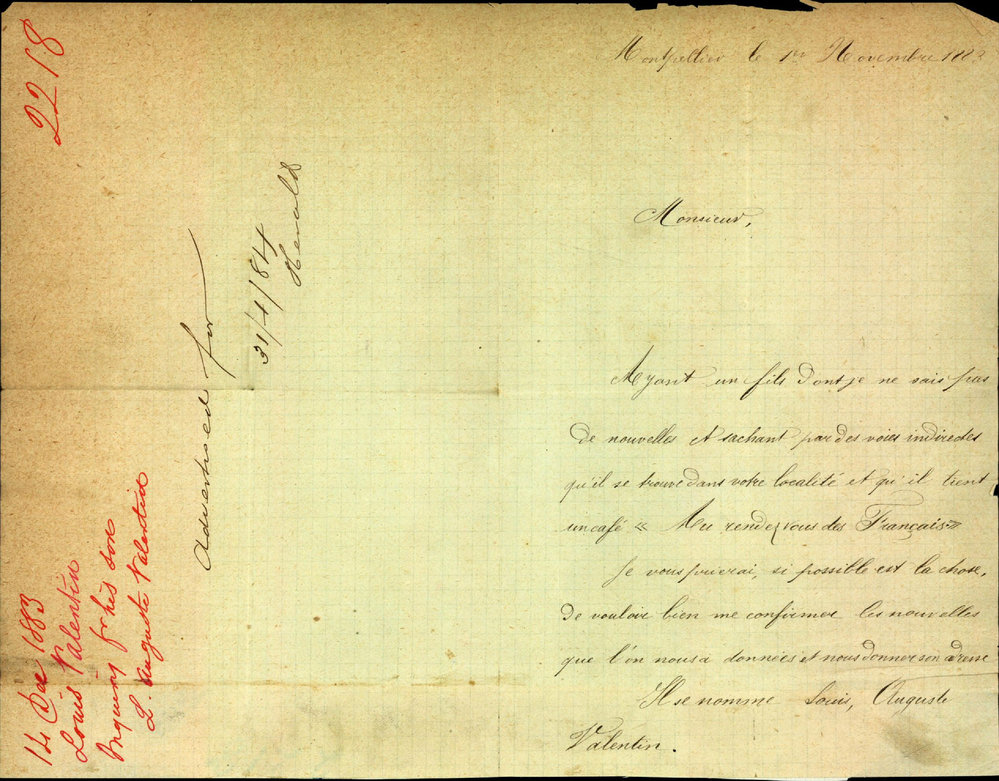 2218
14 Dec 1883
Louis Valentin
Inquiring fr his son
L. Auguste Valentin
Advertised for
31/1/84
Herald
Montpellier le 1er Novembre 1883
Monsieur,
Ayant un fils dont je ne sais pas
de nouvelles et sachant par des voies indirectes
qu'il se trouve dans votre localité et qu'il tient
un café « Au rendez vous des Français »
Je vous prierai, si possible est la chose,
de vouloir bien me confirmer les nouvelles
que l'on nous a données et nous donner son adresse
Il se nomme Louis, Auguste
Valentin.